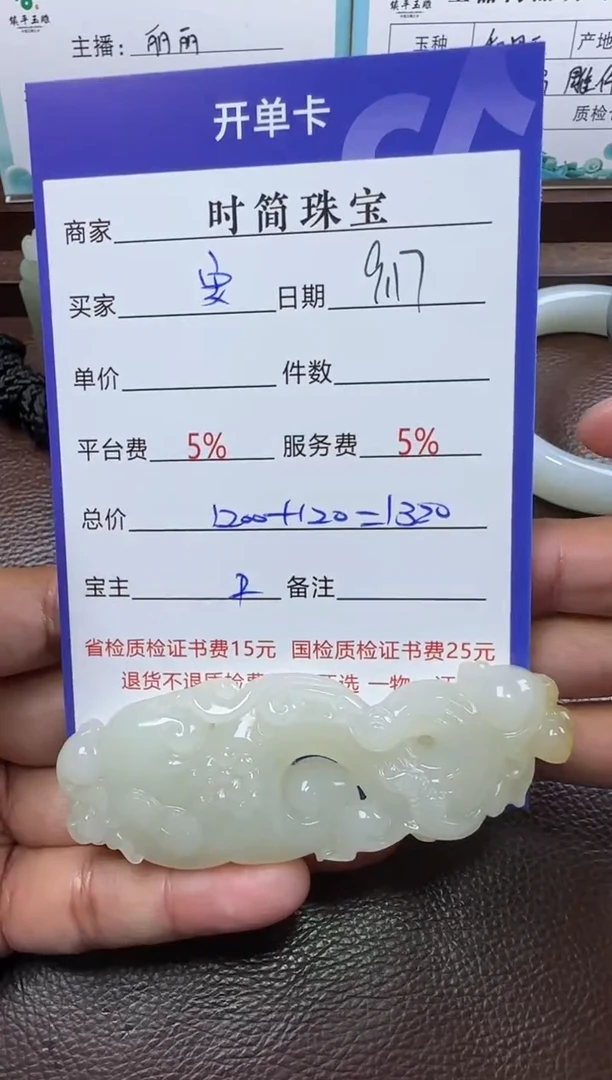 镇平玉雕
主播：丽丽
玉种 产地
雕件
质检
开单卡
商家 时简珠宝
买家 日期 9.17
单价 件数
平台费 5% 服务费 5%
总价 1200+120=1320
宝主 备注
省检质检证书费15元 国检质检证书费25元
退货不退质检费 一物一证